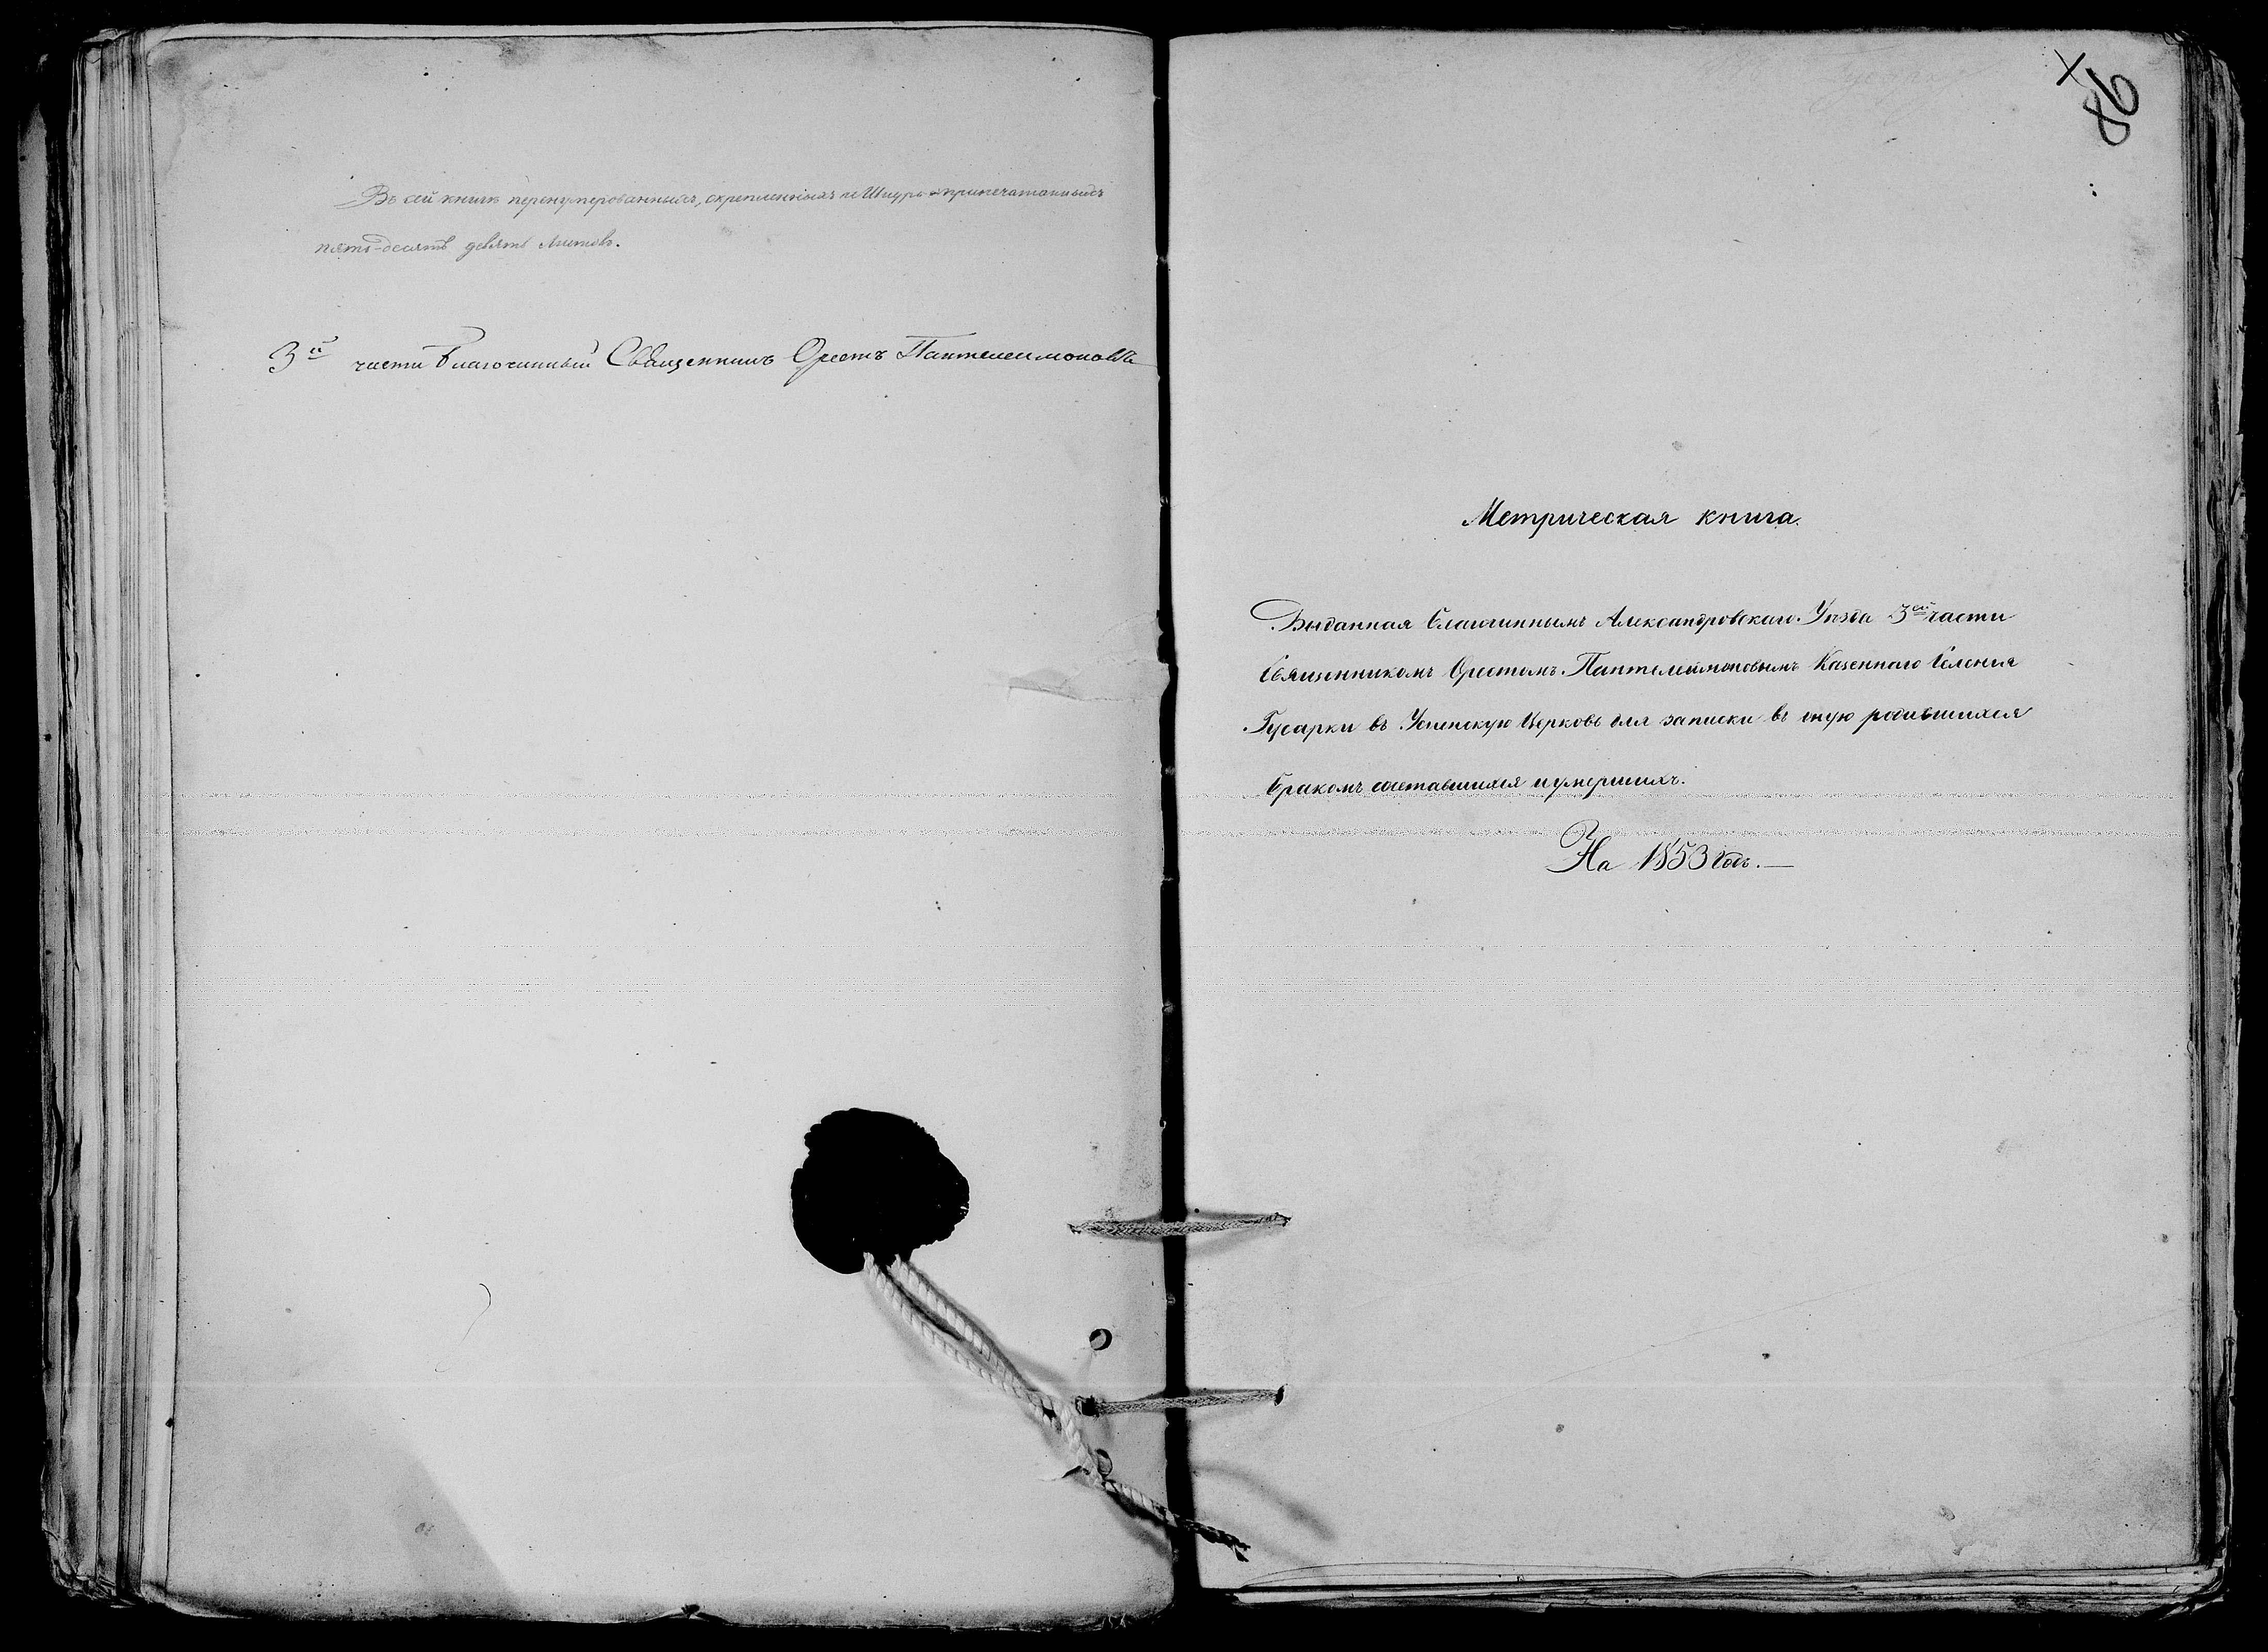 Въ сей книгѣ перенумерованныхъ, скрепленныхъ по Шнуру и припечатанныхъ
пять-десятъ девять Листовъ.
3й части Благочинный Священникъ Орестъ Пантелеимоновъ
86
Метрическая книга.
Выданная Благочиннымъ Александровскаго Уѣзда 3ей части
Священникомъ Орестомъ Пантелеймоновымъ Казеннаго Селенія
Гусарки въ Успенскую Церковь для записки въ оную родившихся
бракомъ сочетавшихся и умершихъ.
На 1853 Годъ.—